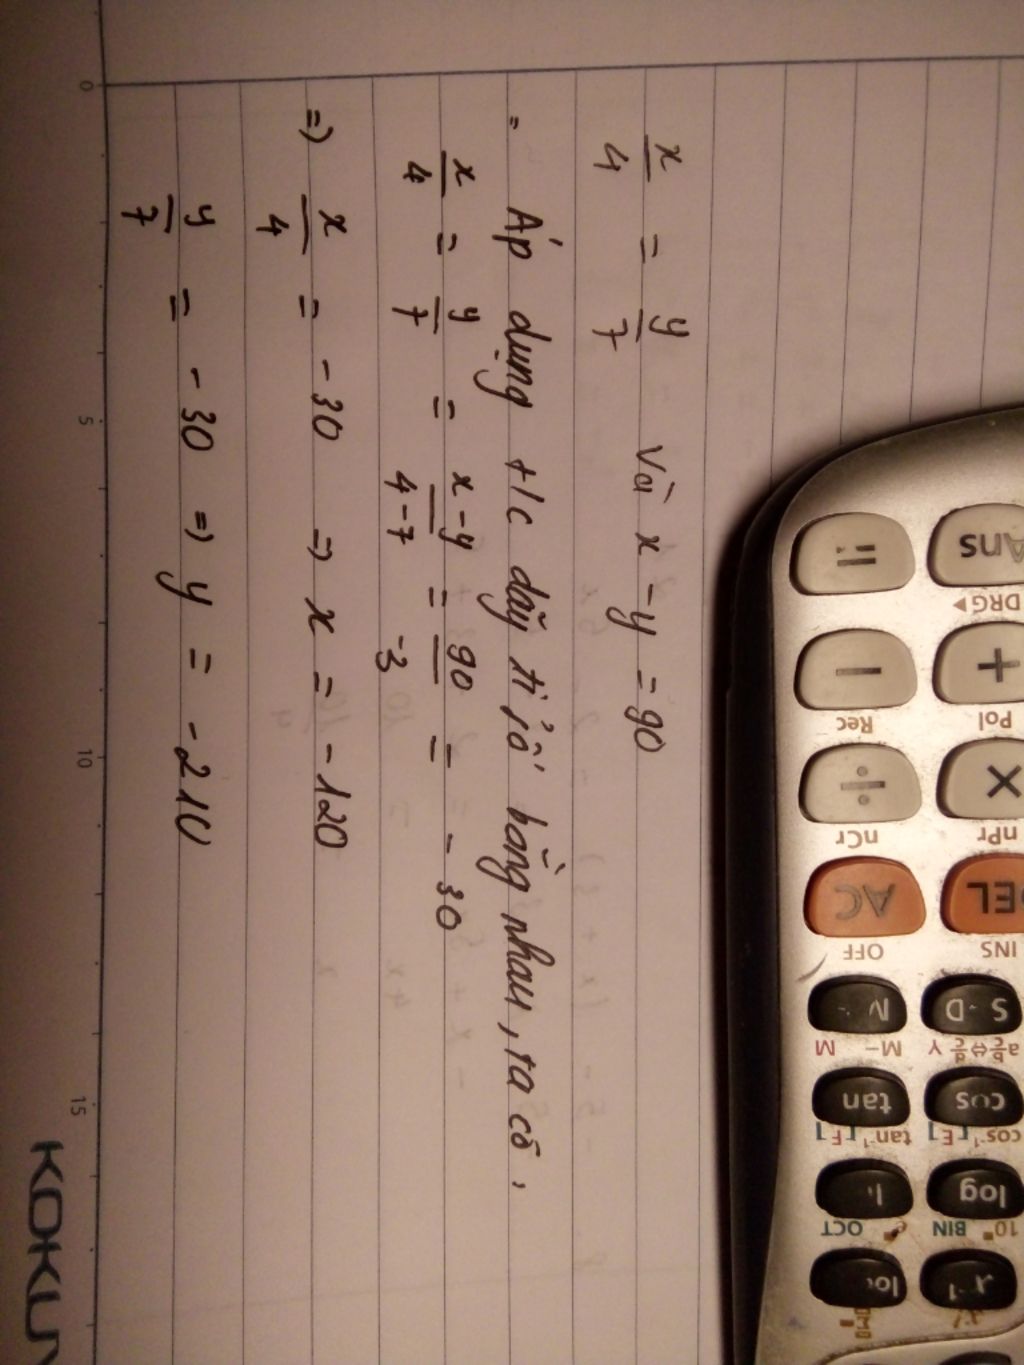 x/4 = y/7 và x - y = 90
= Áp dụng t/c dãy tỉ số bằng nhau, ta có,
x/4 = y/7 = x-y/4-7 = 90/-3 = -30
=> x/4 = -30 => x = -120
y/7 = -30 => y = -210
0 5 10 15
KOKUY
Ans = DRG▶
+ − Pol Rec
× ÷ nPr nCr
DEL AC INS OFF
S D M
a b/c ⇔ d/c Y M− M
cos tan
cos⁻¹ [E] tan⁻¹ [F]
log
10 BIN e OCT
x⁻¹